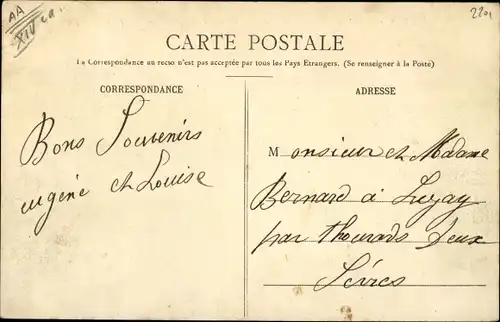 AA
XIV en
2201
CARTE POSTALE
La Correspondance au recto n'est pas acceptée par tous les Pays Etrangers. (Se renseigner à la Poste)
CORRESPONDANCE
Bons Souvenirs
eugéne et Louise
ADRESSE
Monsieur et Madame
Bernard à Luzay
par thouards Deux
Sévres